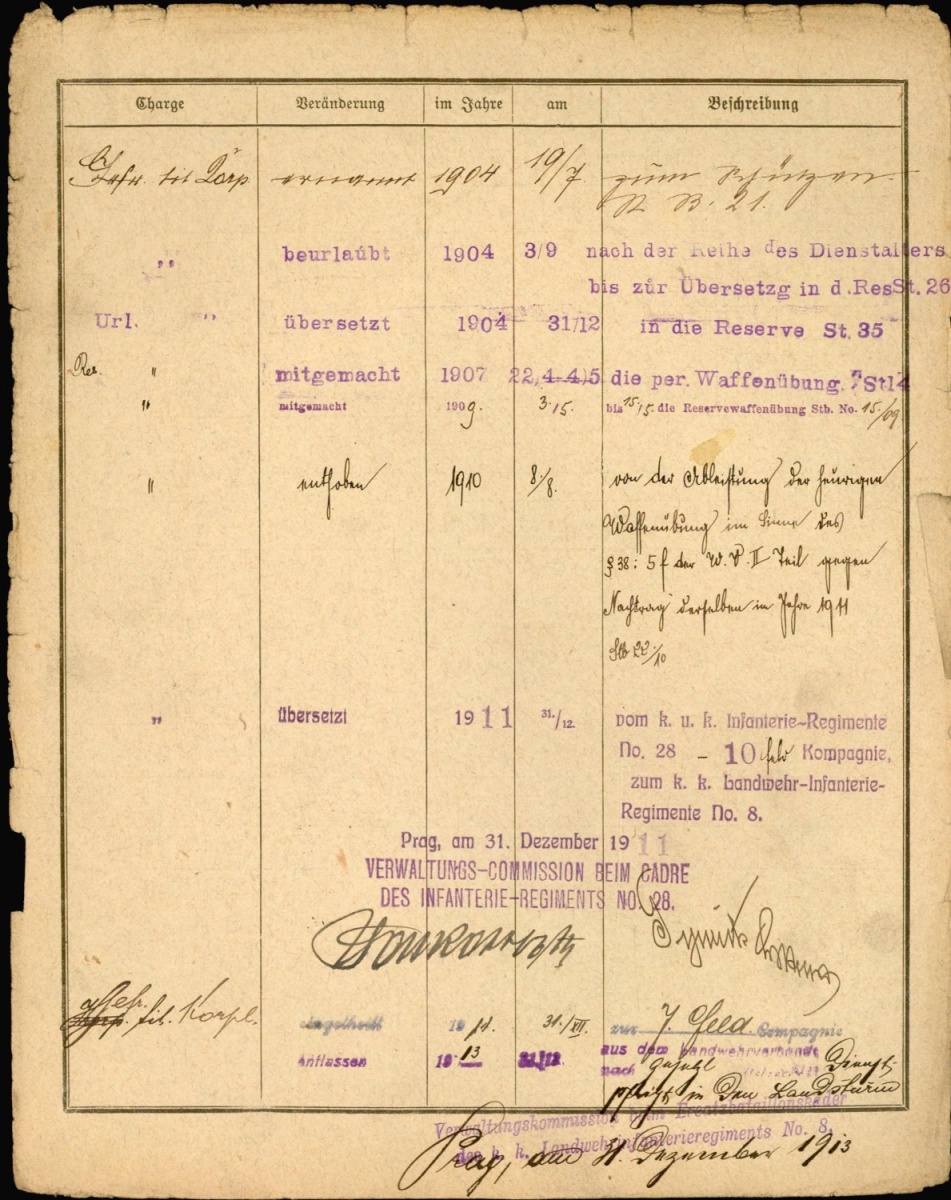 Charge Veränderung im Jahre am Beschreibung
Gefr. tit Korp ernannt 1904 19/7. zum Schützen
St B. 21.
„ beurlaubt 1904 3/9 nach der Reihe des Dienstalters
bis zur Übersetzg in d. Res St. 26
Url. „ übersetzt 1904 31/12 in die Reserve St. 35
Res. " mitgemacht 1907 die per. Waffenübung. St 14
" mitgemacht 1909. 3./5. bis 15/5. die Reservewaffenübung Stb. No. 15/09
" enthoben 1910 8./8. von der Ableistung der heurigen
Waffenübung im Sinne des
§ 38: 5 f der W. V. II Teil gegen
Nachtrag derselben im Jahre 1911
Stb 22/10
„ übersetzt 1911 31./12. vom k. u. k. Infanterie-Regimente
No. 28 – 10 Feld Kompagnie,
zum k. k. Landwehr-Infanterie-
Regimente No. 8.
Prag, am 31. Dezember 1911
VERWALTUNGS-COMMISSION BEIM CADRE
DES INFANTERIE-REGIMENTS NO. 28.
Gefr. tit. Korpl. eingeteilt 31./XII. zur 7. Feld Compagnie
entlassen 1913 31/12 aus dem Landwehrverbande
nach Dienst-
pflicht in den Landsturm
Verwaltungskommission beim Ersatzbataillonskader
des k. k. Landwehrinfanterieregiments No. 8.
Prag, am 31. Dezember 1913